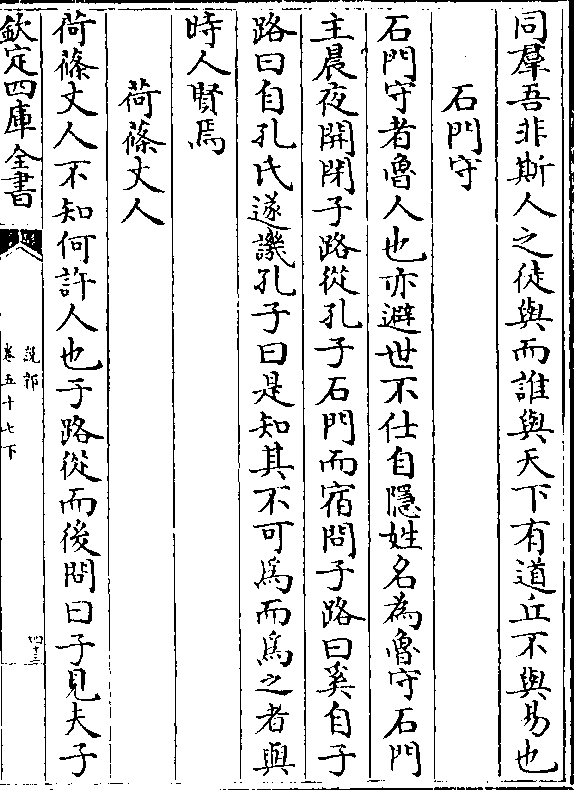 同羣吾非斯人之徒與而誰與天下有道丘不與易也
石門守
石門守者魯人也亦避世不仕自隱姓名為魯守石門
主晨夜開閉子路從孔子石門而宿問子路曰奚自子
路曰自孔氏遂譏孔子曰是知其不可為而為之者與
時人賢焉
荷蓧丈人
荷蓧丈人不知何許人也子路從而後問曰子見夫子
欽定四庫全書
說郛
卷五十七下
四十三